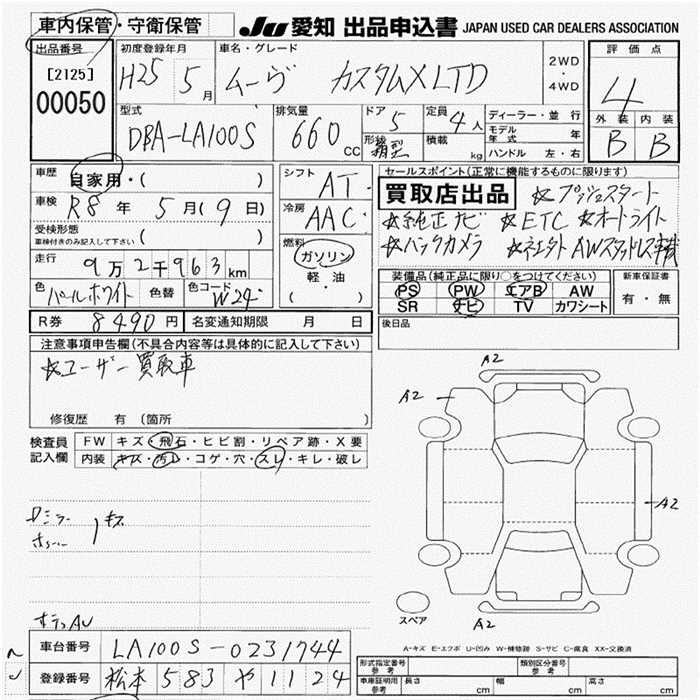 車内保管・守衛保管
JU 愛知 出品申込書 JAPAN USED CAR DEALERS ASSOCIATION
出品番号
[2125]
00050
初度登録年月
H25 5月
車名・グレード
ムーヴ カスタムXLTD
2WD・4WD
評価点
4
外装 内装
B B
型式
DBA-LA100S
排気量
660cc
ドア
5
形状
箱型
定員
4人
積載 kg
ディーラー・並行
モデル年式 年
ハンドル 左・右
車歴 自家用・( )
車検 R8年 5月(9日)
受検形態
車検付きのみ記入して下さい ( )
走行 9万2千963km
色 パールホワイト 色替 色コード W24
シフト AT
冷房 AAC
燃料
ガソリン
軽・油
( ・ )
セールスポイント(正常に機能するものに限ります)
買取店出品 ☆プッシュスタート
☆純正ナビ ☆ETC ☆オートライト
☆バックカメラ
装備品(純正品に限り○をつけてください)
PS PW エアB AW
SR ナビ TV カワシート
新車保証書
有・無
R券 8490円 名変通知期限 月 日
後日品
注意事項申告欄(不具合内容等は具体的に記入して下さい)
☆ユーザー買取車
修復歴 有 (箇所 )
検査員記入欄
FW キズ・飛石・ヒビ割・リペア跡・X要
内装 キズ・汚レ・コゲ・穴・スレ・キレ・破レ
Dミラー
キズ
A2
A2
A2
A2
スペア
A-キズ E-エクボ U-凹み W-補修跡 S-サビ C-腐食 XX-交換済
車台番号 LA100S-0231744
登録番号 松本 583 や 1124
形式指定番号 参考
類別区分番号 参考
車庫証明用 参考
長さ cm 幅 cm 高さ cm